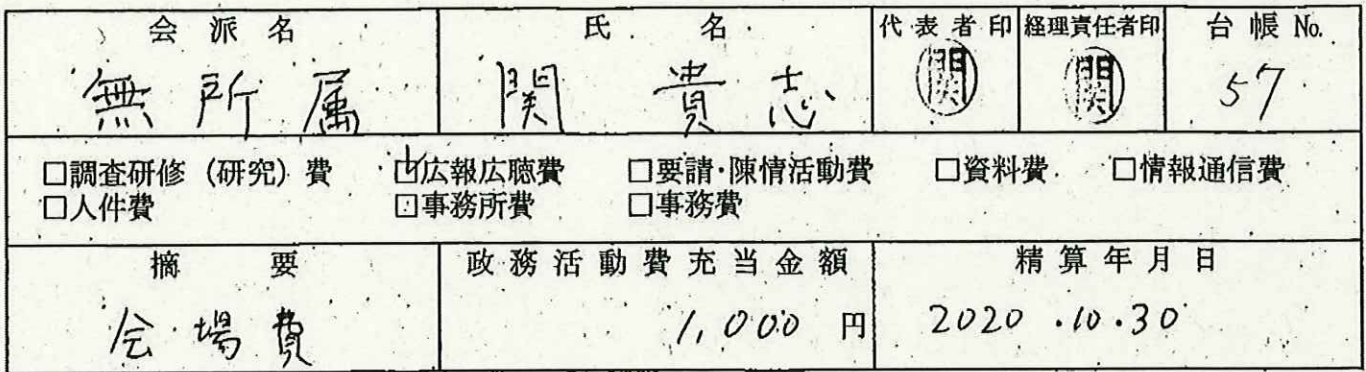 会派名 氏名 代表者印 経理責任者印 台帳No.
無所属 関貴志 関 関 57
□調査研修（研究）費 ☑広報広聴費 □要請・陳情活動費 □資料費 □情報通信費
□人件費 □事務所費 □事務費
摘要 政務活動費充当金額 精算年月日
会場費 1,000円 2020.10.30